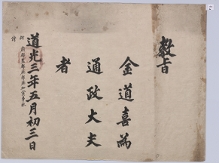 敎旨
金道喜爲
通政大夫
者
道光三年五月初三日